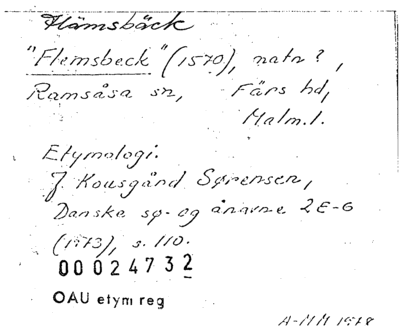 Flämsbäck
"Flemsbeck" (1570), natn?,
Ramsåsa sn, Färs hd,
Malm.l.
Etymologi.
J. Kousgård Sørensen,
Danske sø- og ånavne 2 E-G
(1973), s. 110.
00024732
OAU etym reg
A-MM 1978